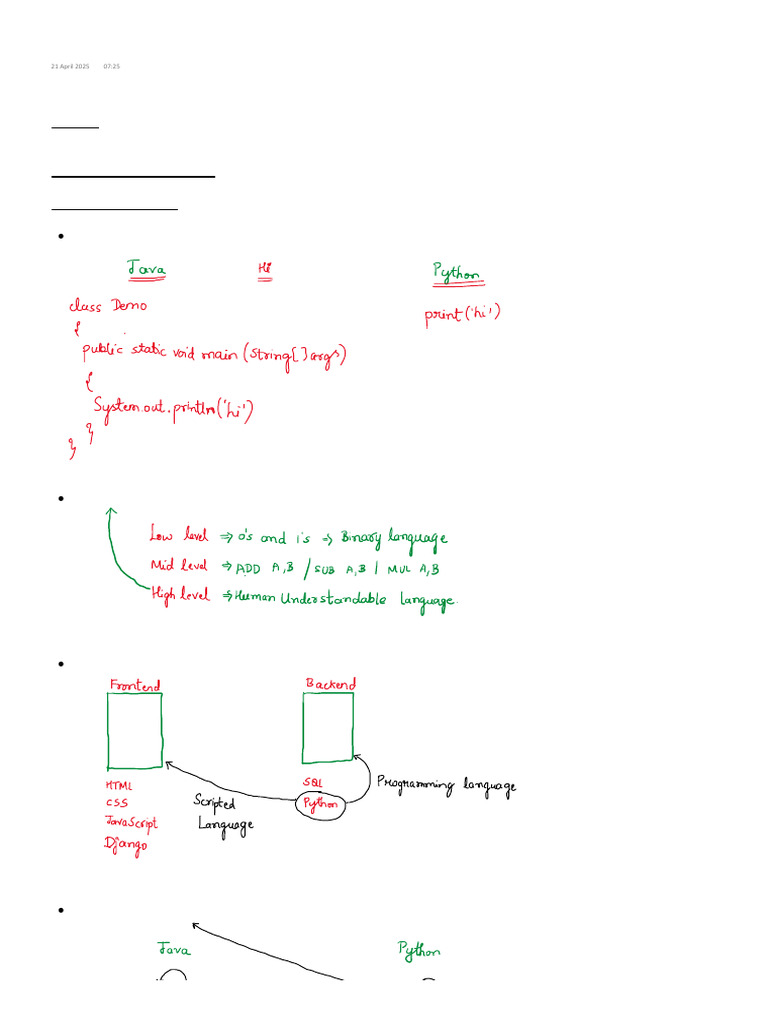 21 April 2025 07:25
Java Hi Python
class Demo print('hi')
{
public static void main (String[] args)
{
System.out.println('hi')
}
}
Low level ⇒ 0's and 1's ⇒ Binary language
Mid level ⇒ ADD A,B / SUB A,B / MUL A,B
High level ⇒ Human Understandable language.
Frontend Backend
HTML SQL Programming language
CSS Scripted Python
JavaScript Language
Django
Java Python